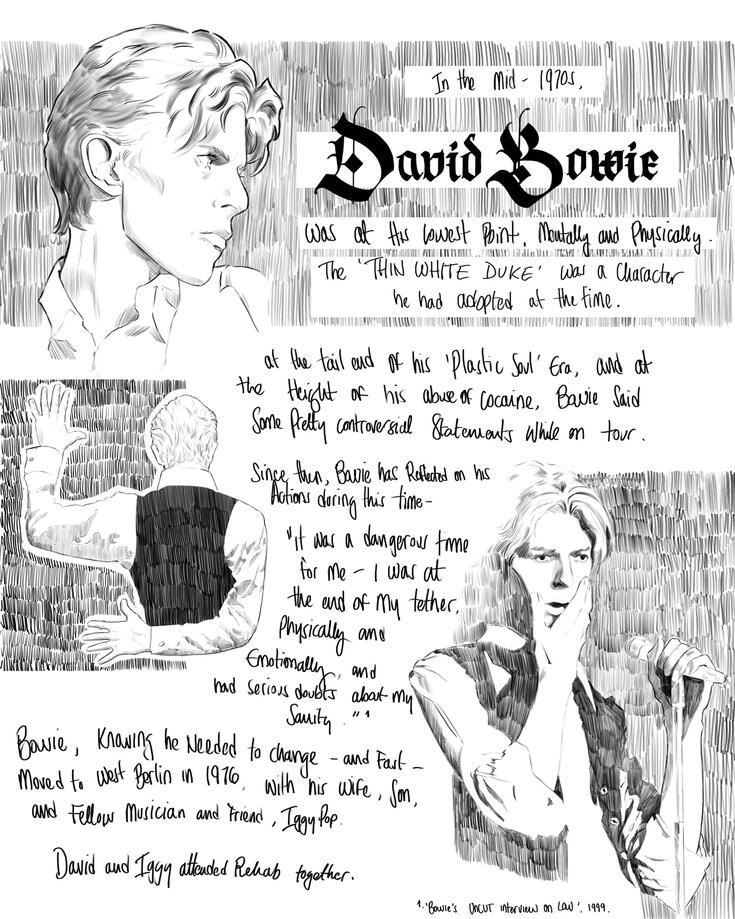 In the Mid - 1970s,
David Bowie
was at His lowest Point, Mentally and Physically.
The 'THIN WHITE DUKE' was a Character
he had adopted at the time.
at the tail end of his 'Plastic Soul' Era, and at
the Height of his abuse of cocaine, Bowie Said
Some Pretty controversial Statements while on tour.
Since then, Bowie has Reflected on his
Actions during this time-
"it was a dangerous time
for me - I was at
the end of my tether,
Physically and
Emotionally, and
had serious doubts about my
Sanity." 1
Bowie, Knowing he Needed to change - and Fast -
Moved to West Berlin in 1976, with his wife, Son,
and Fellow Musician and Friend, Iggy Pop.
David and Iggy attended Rehab together.
1. 'Bowie's UNCUT interview on Low', 1999.